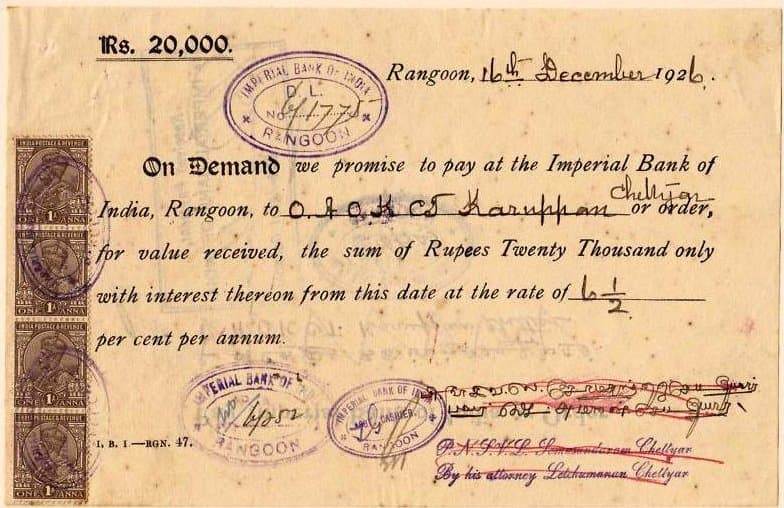 Rs. 20,000.
IMPERIAL BANK OF INDIA
D. L.
NO 6/1775
RANGOON
Rangoon, 16th December 1926.
INDIA POSTAGE & REVENUE
ONE 1A ANNA
On Demand we promise to pay at the Imperial Bank of
India, Rangoon, to O. A. O. K. CT Karuppan Chettyar or order,
for value received, the sum of Rupees Twenty Thousand only
with interest thereon from this date at the rate of 6 1/2
per cent per annum.
ONE 1A ANNA
INDIA POSTAGE & REVENUE
ONE 1A ANNA
IMPERIAL BANK OF
RANGOON
IMPERIAL BANK OF INDIA
CASHIER
RANGOON
P. N. S. V. L. Chettyar
By his attorney Letchumanan Chettyar
I. B. I.—RGN. 47.
ONE 1A ANNA